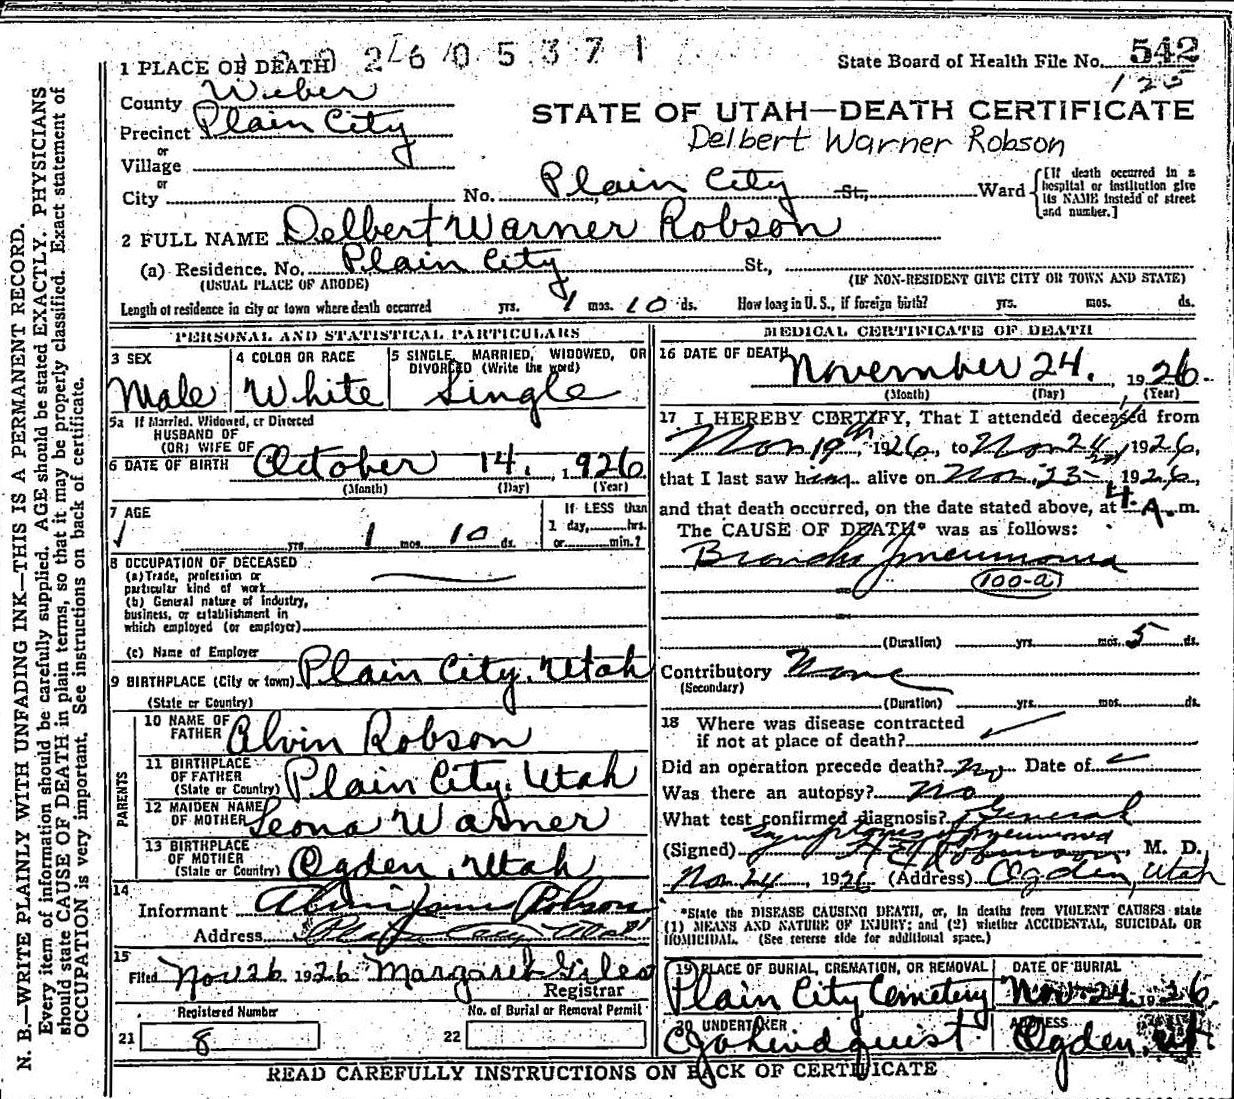 1 PLACE OF DEATH 2 6 0 5 3 7 1
State Board of Health File No. 542
125
County Weber
STATE OF UTAH—DEATH CERTIFICATE
Precinct Plain City
Delbert Warner Robson
or
Village
or
City No. Plain City St, Ward [If death occurred in a hospital or institution give its NAME instead of street and number.]
2 FULL NAME Delbert Warner Robson
(a) Residence. No. Plain City St.,
(USUAL PLACE OF ABODE) (IF NON-RESIDENT GIVE CITY OR TOWN AND STATE)
Length of residence in city or town where death occurred yrs. 1 mos. 10 ds. How long in U.S., if foreign birth? yrs. mos. ds.
PERSONAL AND STATISTICAL PARTICULARS
3 SEX
Male
4 COLOR OR RACE
White
5 SINGLE, MARRIED, WIDOWED, OR
DIVORCED (Write the word)
Single
5a If Married, Widowed, or Divorced
HUSBAND OF
(OR) WIFE OF
6 DATE OF BIRTH October 14, 1926
(Month) (Day) (Year)
7 AGE
yrs. 1 mos. 10 ds.
If LESS than
1 day, hrs.
or min.?
8 OCCUPATION OF DECEASED
(a) Trade, profession or
particular kind of work
(b) General nature of industry,
business, or establishment in
which employed (or employer)
(c) Name of Employer
9 BIRTHPLACE (City or town) Plain City, Utah
(State or Country)
PARENTS
10 NAME OF
FATHER Alvin Robson
11 BIRTHPLACE
OF FATHER
(State or Country) Plain City, Utah
12 MAIDEN NAME
OF MOTHER Leona Warner
13 BIRTHPLACE
OF MOTHER
(State or Country) Ogden, Utah
14
Informant Alvin James Robson
Address Plain City Utah
15
Filed Nov 26 1926 Margaret Giles
Registrar
Registered Number
21 8
No. of Burial or Removal Permit
22
MEDICAL CERTIFICATE OF DEATH
16 DATE OF DEATH November 24, 1926
(Month) (Day) (Year)
17 I HEREBY CERTIFY, That I attended deceased from
Nov 19th, 1926, to Nov 24, 1926,
that I last saw him alive on Nov. 23 1926,
and that death occurred, on the date stated above, at 4 A. m.
The CAUSE OF DEATH* was as follows:
Broncho Pneumonia
100-a
(Duration) yrs. mos. 5 ds.
Contributory None
(Secondary)
(Duration) yrs. mos. ds.
18 Where was disease contracted
if not at place of death?
Did an operation precede death? No Date of
Was there an autopsy? No
What test confirmed diagnosis? General
Symptoms of Pneumonia
(Signed) M. D.
Nov 24, 1926 (Address) Ogden, Utah
*State the DISEASE CAUSING DEATH, or, in deaths from VIOLENT CAUSES state
(1) MEANS AND NATURE OF INJURY; and (2) whether ACCIDENTAL, SUICIDAL OR
HOMICIDAL. (See reverse side for additional space.)
19 PLACE OF BURIAL, CREMATION, OR REMOVAL
Plain City Cemetery
DATE OF BURIAL
Nov. 24 1926.
20 UNDERTAKER
Lindquist
ADDRESS
Ogden, Ut
READ CAREFULLY INSTRUCTIONS ON BACK OF CERTIFICATE
N. B.—WRITE PLAINLY WITH UNFADING INK—THIS IS A PERMANENT RECORD.
Every item of information should be carefully supplied. AGE should be stated EXACTLY. PHYSICIANS
should state CAUSE OF DEATH in plain terms, so that it may be properly classified. Exact statement of
OCCUPATION is very important. See instructions on back of certificate.